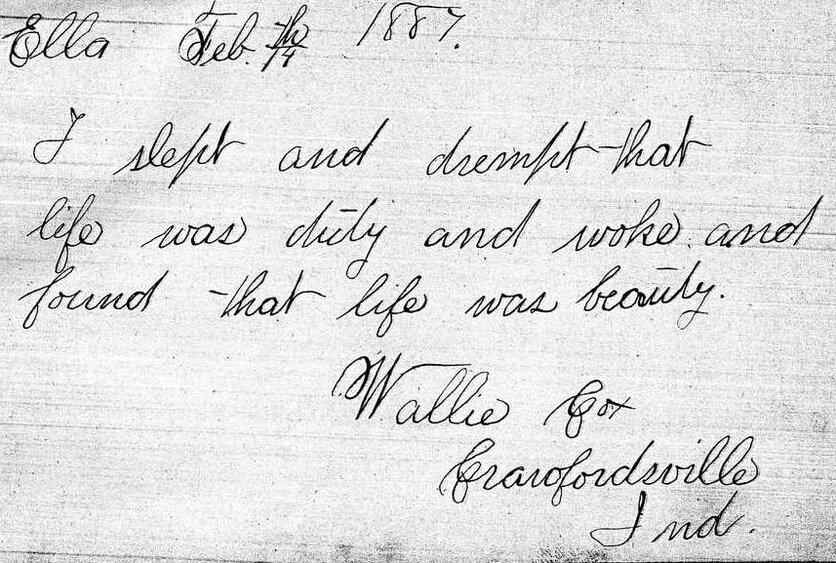 Ella Feb. 14th 1887.
I slept and drempt that
life was duty and woke and
found that life was beauty.
Wallie Cox
Crawfordsville
Ind.